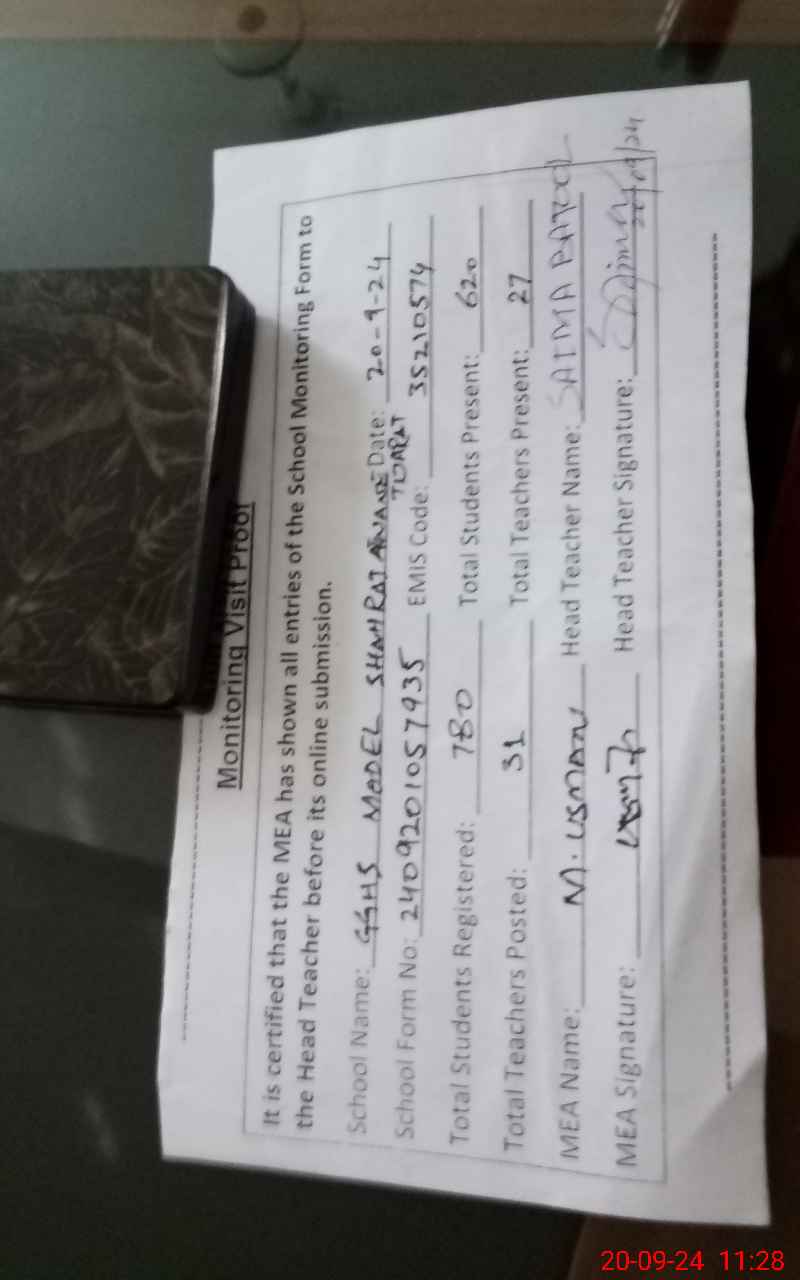 Monitoring Visit Proof
It is certified that the MEA has shown all entries of the School Monitoring Form to
the Head Teacher before its online submission.
School Name: GGHS MODEL Date: 20-9-24
School Form No: 2409201057935 EMIS Code: 35210574
Total Students Registered: 780 Total Students Present: 620
Total Teachers Posted: 31 Total Teachers Present: 27
MEA Name: M. USMAN Head Teacher Name: SAIMA BATOOL
MEA Signature: Head Teacher Signature:
20/09/24
20-09-24 11:28